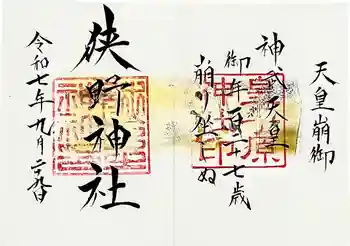 天皇崩御
神武天皇
御年百二十七歳
崩り坐しぬ
狭野神社
令和七年九月